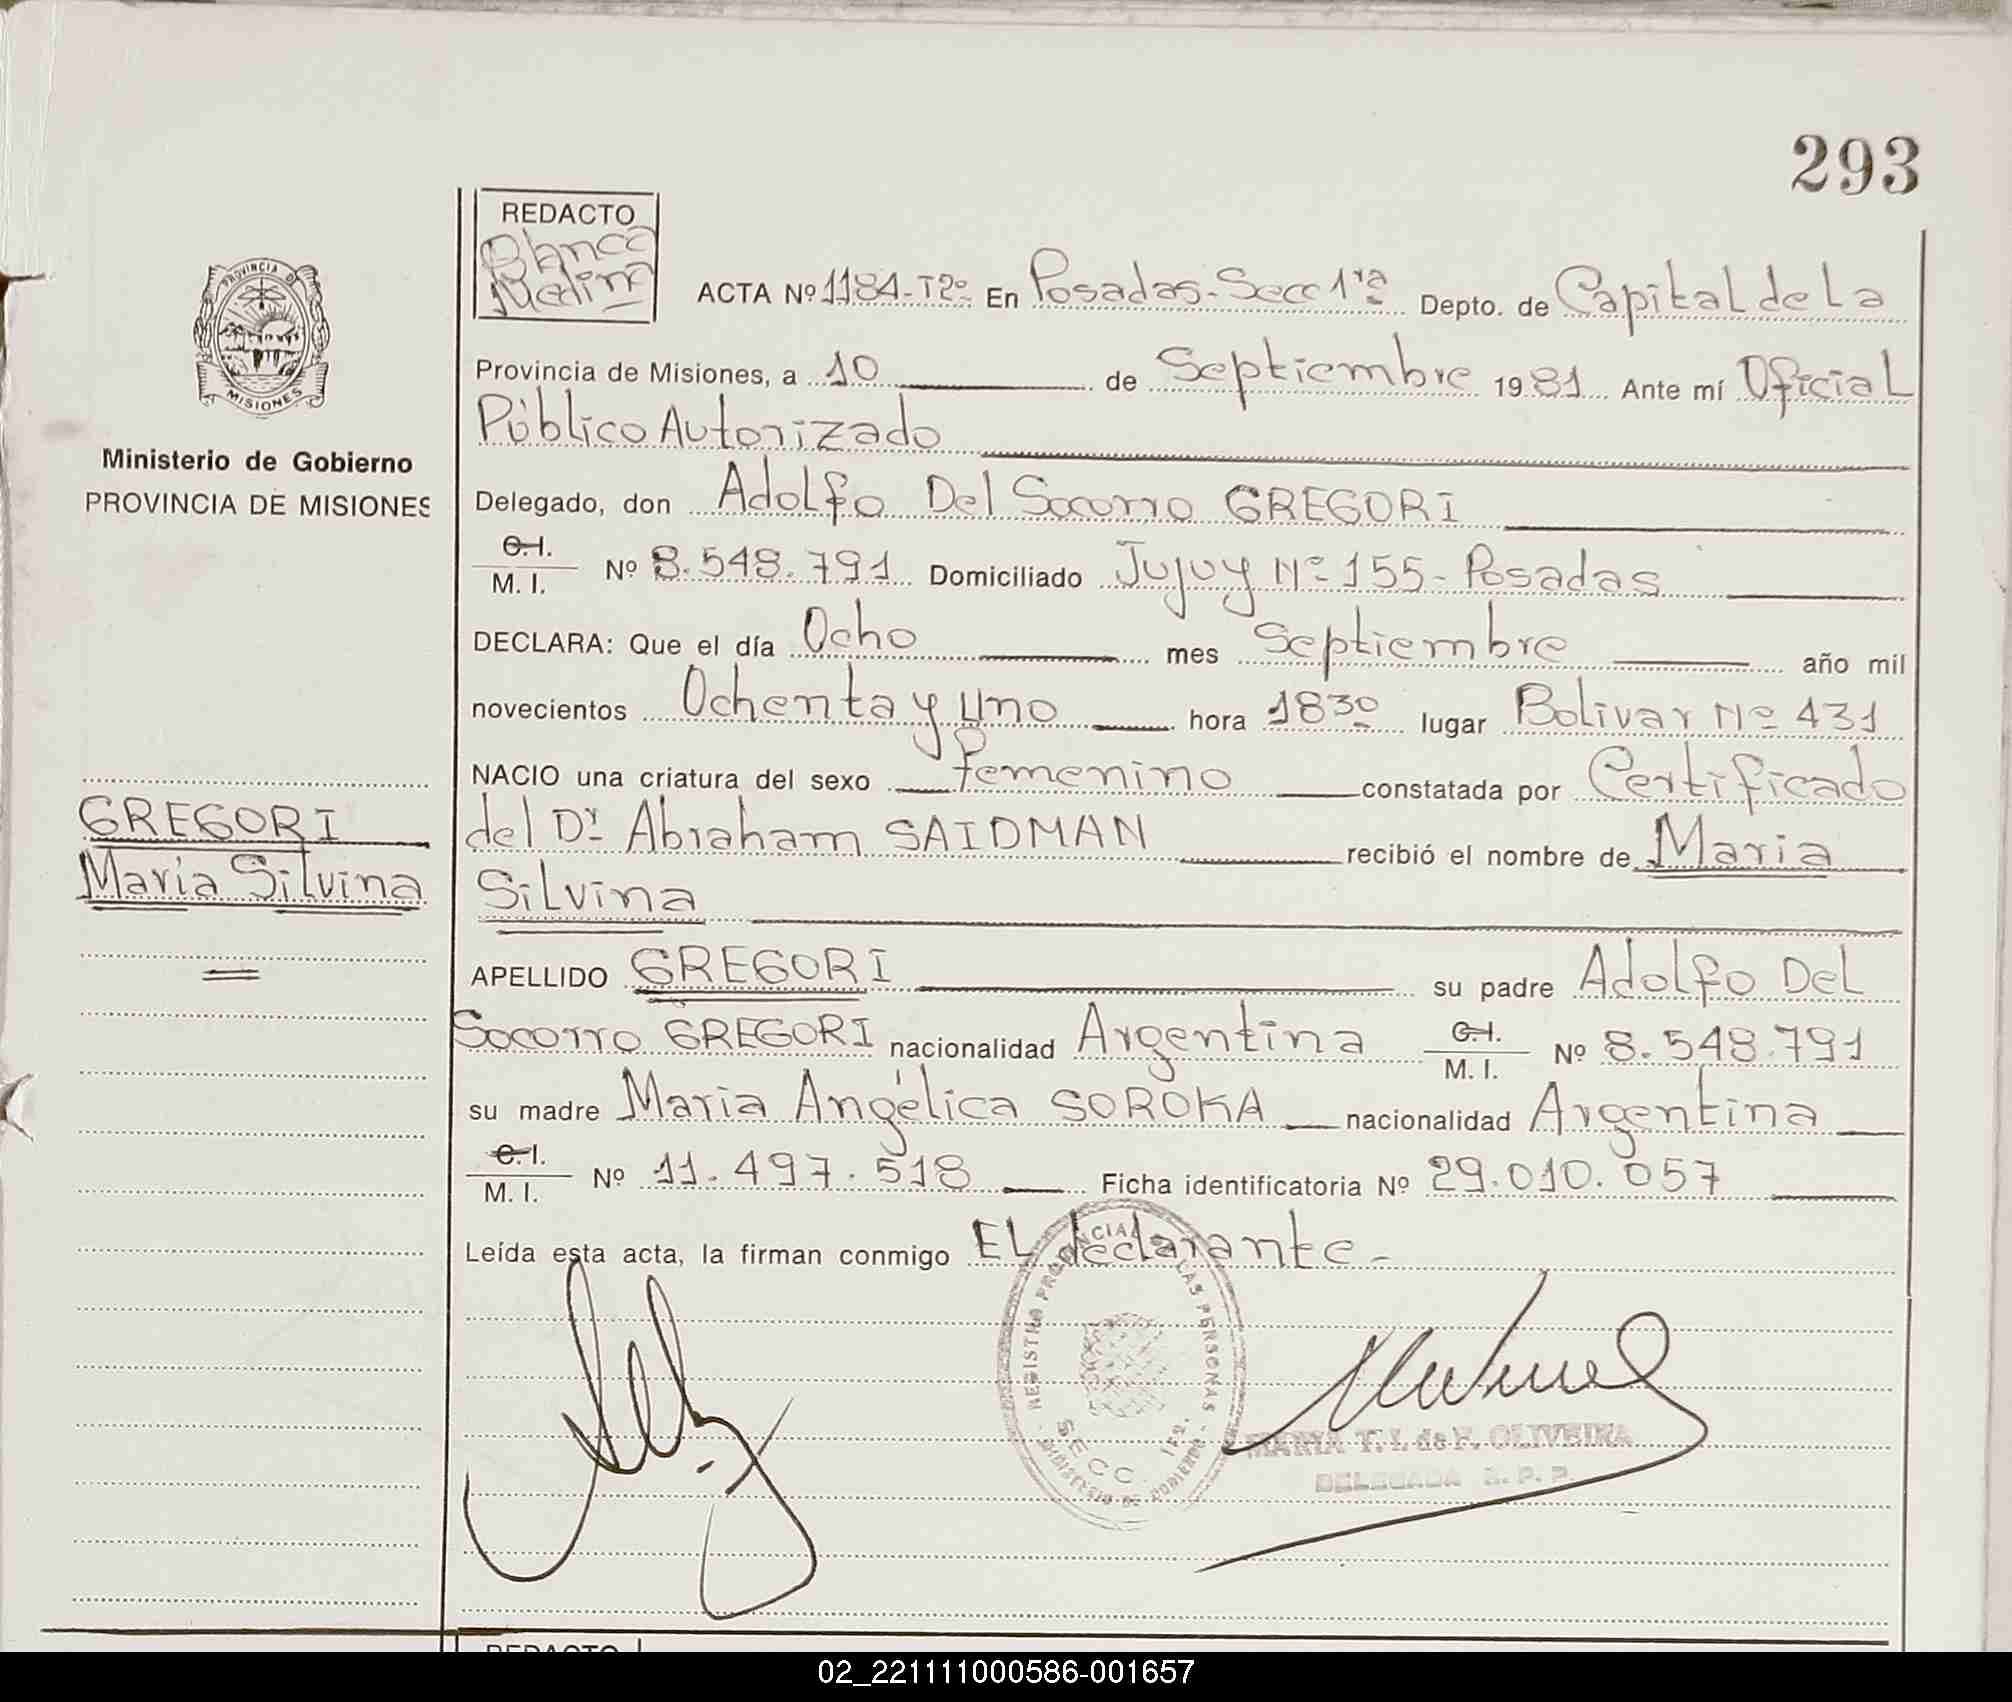 293
REDACTO
Blanca
Medina
PROVINCIA DE
MISIONES
Ministerio de Gobierno
PROVINCIA DE MISIONES
ACTA Nº 1184-T2º En Posadas-Secc 1ra Depto. de Capital de La
Provincia de Misiones, a 10 de Septiembre 1981 Ante mí Oficial
Público Autorizado
Delegado, don Adolfo Del Socorro GREGORI
C.I.
M. I. Nº 8.548.791 Domiciliado Jujuy Nº 155- Posadas
DECLARA: Que el día Ocho mes Septiembre año mil
novecientos Ochenta y Uno hora 18 30 lugar Bolivar Nº 431
NACIO una criatura del sexo femenino constatada por Certificado
del Dr Abraham SAIDMAN recibió el nombre de Maria
Silvina
GREGORI
María Silvina
APELLIDO GREGORI su padre Adolfo Del
Socorro GREGORI nacionalidad Argentina C.I. M. I. Nº 8.548.791
su madre Maria Angélica SOROKA nacionalidad Argentina
C.I.
M. I. Nº 11.497.518 Ficha identificatoria Nº 29.010.057
Leída esta acta, la firman conmigo EL declarante-
REGISTRO PROVINCIAL LAS PERSONAS
SECC 1ra.
MARIA T. I. de F. OLIVEIRA
DELEGADA R. P. P.
REDACTO
02_221111000586-001657